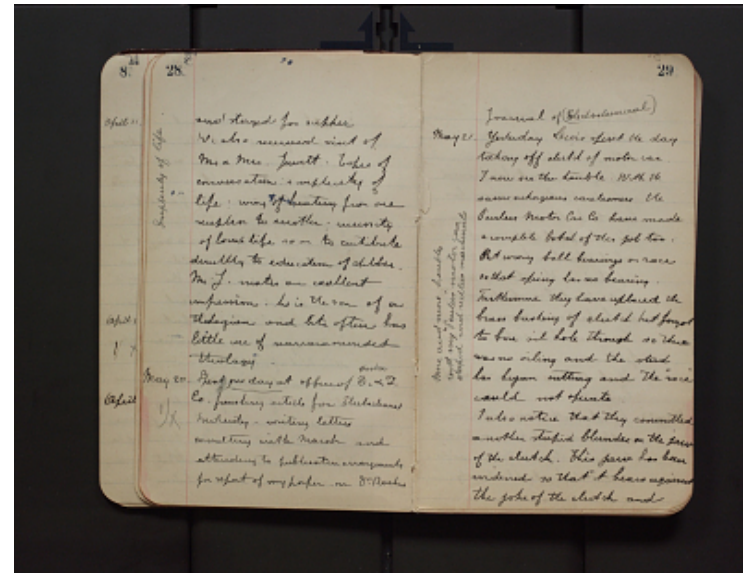 8.
28.
April
Simplicity of life
and stayed for supper
We also received visit of
Mr & Mrs. Jewett. Topic of
conversation: simplicity of
life: way of hurrying from one
reception to another: necessity
of home life so as to contribute
directly to education of children.
Mr J. makes an excellent
impression. he is the son of a
theologian and like often has
little use of narrow minded
theology.
April
May 20.
April
day at office of B. & L.
Co. finishing article for Electrochemical
Industry - writing letters
consulting with Marsh and
attending to publication arrangements
for report of my paper on
29
Journal of (Electrochemical)
May 21. Yesterday Lewis spent the day
taking off clutch of motor car
I now see the trouble. With the
same outrageous carelessness the
Peerless Motor Car Co have made
a complete botch of this job too.
Put wrong ball bearings on race
so that spring has no bearing.
Furthermore they have replaced the
brass bushing of clutch but forgot
to bore oil hole through so there
was no oiling and the steel
has begun cutting and the "race"
could not operate
I also notice that they committed
another stupid blunder on the
of the clutch. This has been
so that it bears against
the yoke of the clutch and
More and more trouble
with my Peerless motor car
clutch and